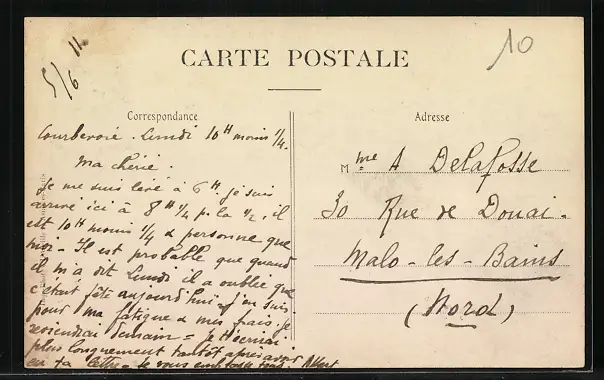 5/6 11
10
CARTE POSTALE
Correspondance
Adresse
Courbevoie. Lundi 10H moins 1/4.
Ma chérie.
Je me suis levé à 6H. je suis
arrivé ici à 8H 1/4 p. la 1/2, il
est 10H moins 1/4 & personne que
moi - Il est probable que quand
il m'a dit Lundi il a oublié que
c'était fête aujourd'hui j'en suis
pour ma fatigue & mes frais. je
reviendrai demain = je t'écrirai
plus longuement tantôt après avoir
eu ta lettre - Je vous embrasse tous. Albert
Mme A Delafosse
30 Rue de Douai -
Malo-les-Bains
(Nord)